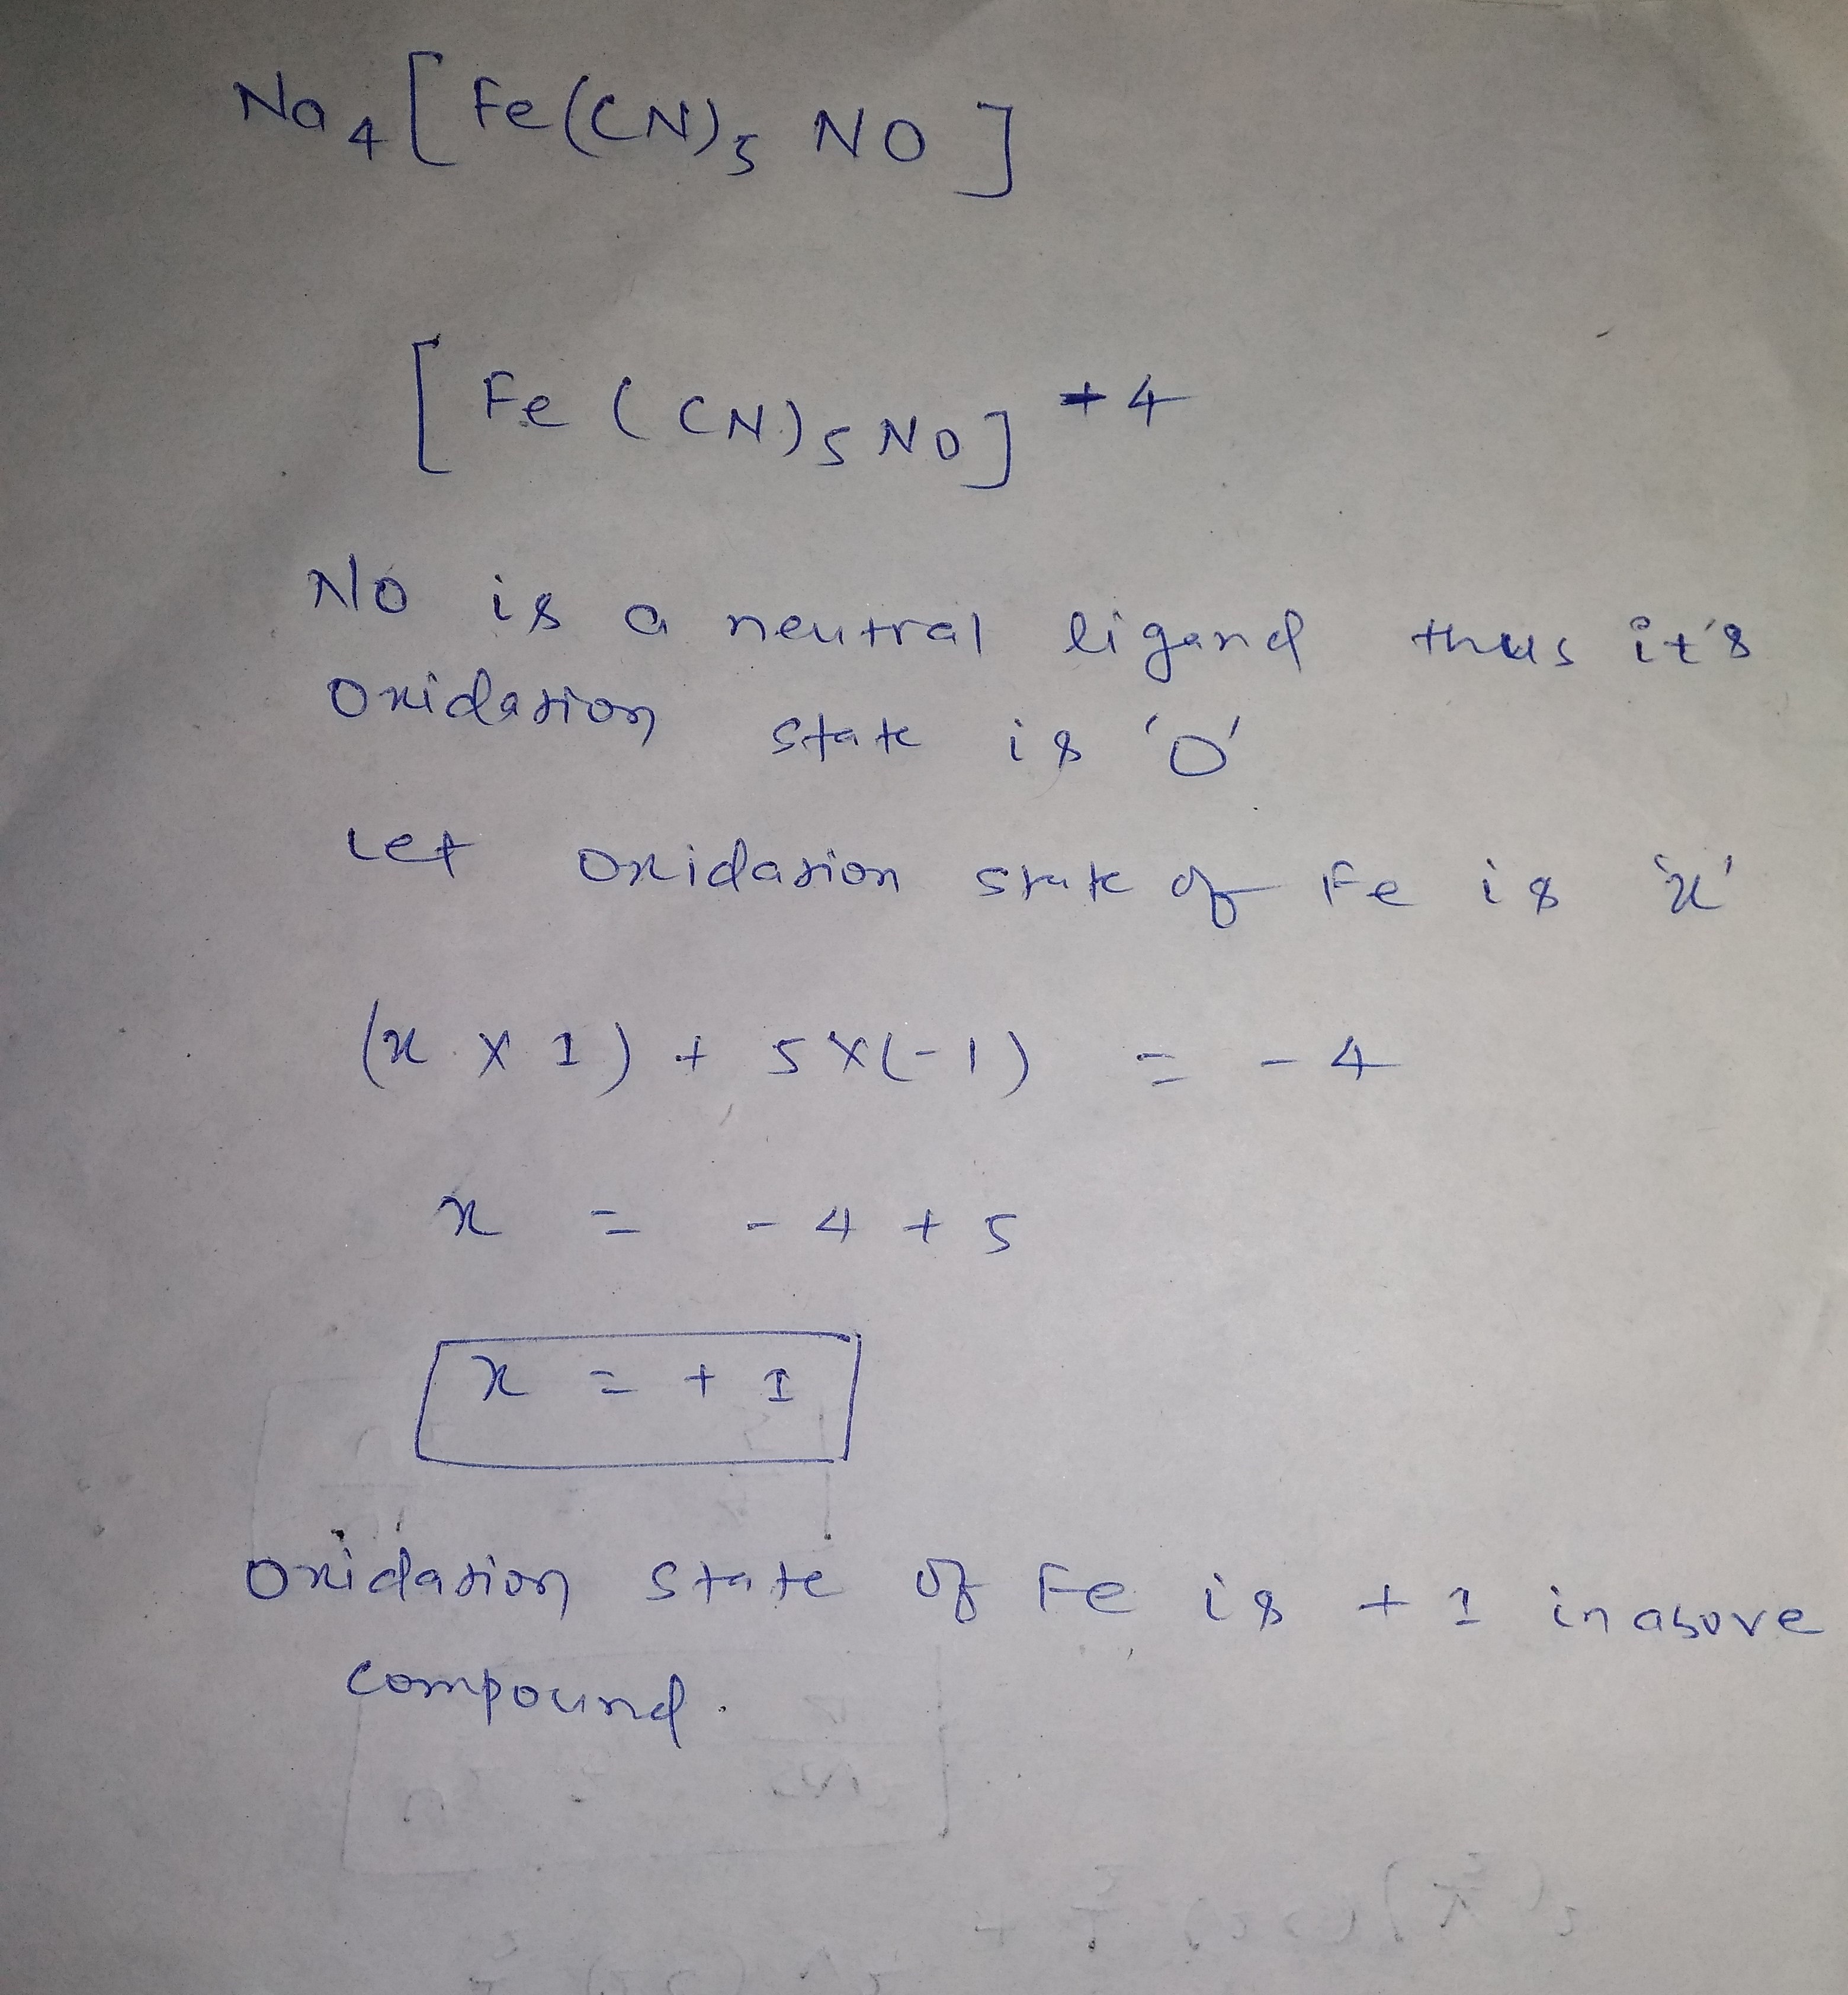 Na4[Fe(CN)5 NO]
[Fe(CN)5NO]+4
NO is a neutral ligand thus it's
oxidation state is '0'
Let oxidation state of Fe is 'x'
(x × 1) + 5×(-1) = -4
x = -4 + 5
x = +1
oxidation state of Fe is +1 in above
compound.